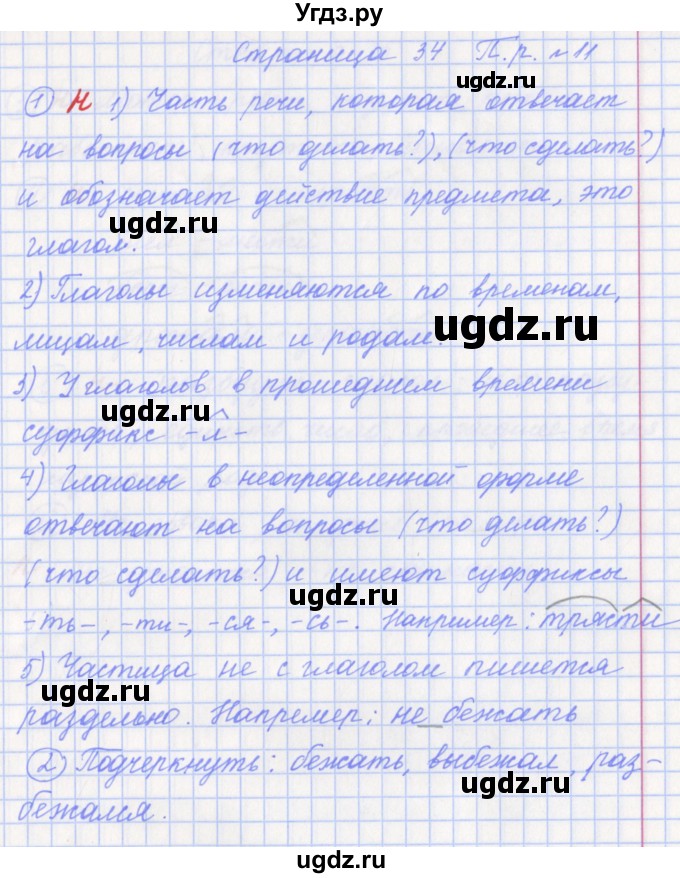 Угдз.ру
Страница 34 П.р. №11
① Н 1) Часть речи, которая отвечает
на вопросы (что делать?), (что сделать?)
и обозначает действие предмета, это
глагол.
ugdz.ru
2) Глаголы изменяются по временам,
лицам, числам и родам.
ugdz.ru
3) У глаголов в прошедшем времени
ugdz.ru
суффикс -л-
4) Глаголы в неопределенной форме
отвечают на вопросы (что делать?)
ugdz.ru
(что сделать?) и имеют суффиксы
ugdz.ru
-ть-, -ти-, -ся-, -сь-. Например: трясти
5) Частица не с глаголом пишется
ugdz.ru
раздельно. Например: не бежать
② Подчеркнуть: бежать, выбежал, раз-
ugdz.ru
бежался.
ugdz.ru